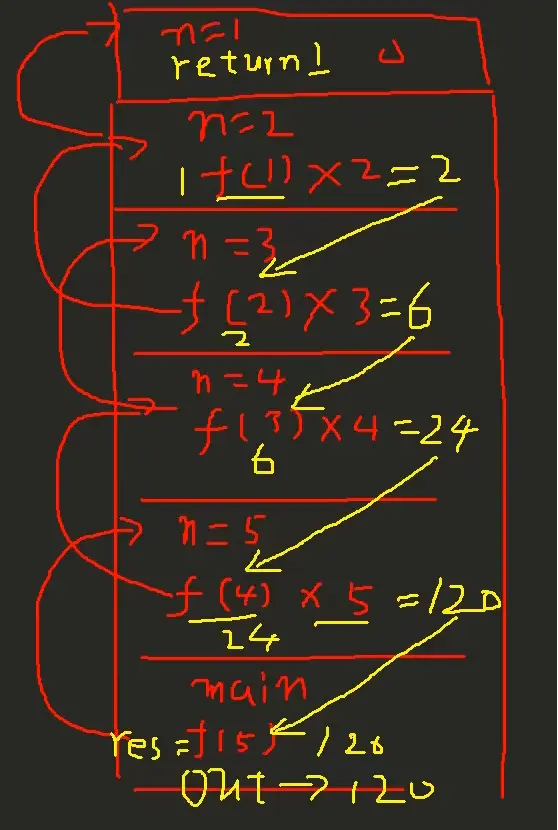 n=1
return1
n=2
1 f(1)×2=2
n=3
f(2)×3=6
2
n=4
f(3)×4=24
6
n=5
f(4)×5=120
24
main
res=f(5) 120
out→120